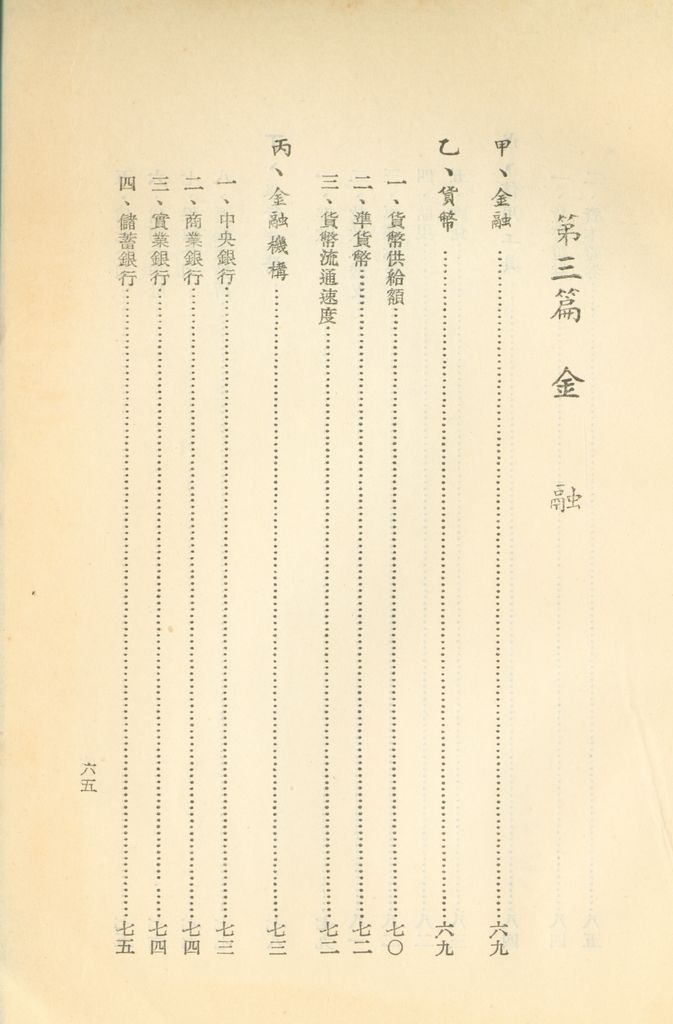 第三篇 金 融
甲、金融……………六九
乙、貨幣……………六九
一、貨幣供給額……………七〇
二、準貨幣……………七二
三、貨幣流通速度……………七二
丙、金融機構……………七三
一、中央銀行……………七三
二、商業銀行……………七四
三、實業銀行……………七四
四、儲蓄銀行……………七五
六五